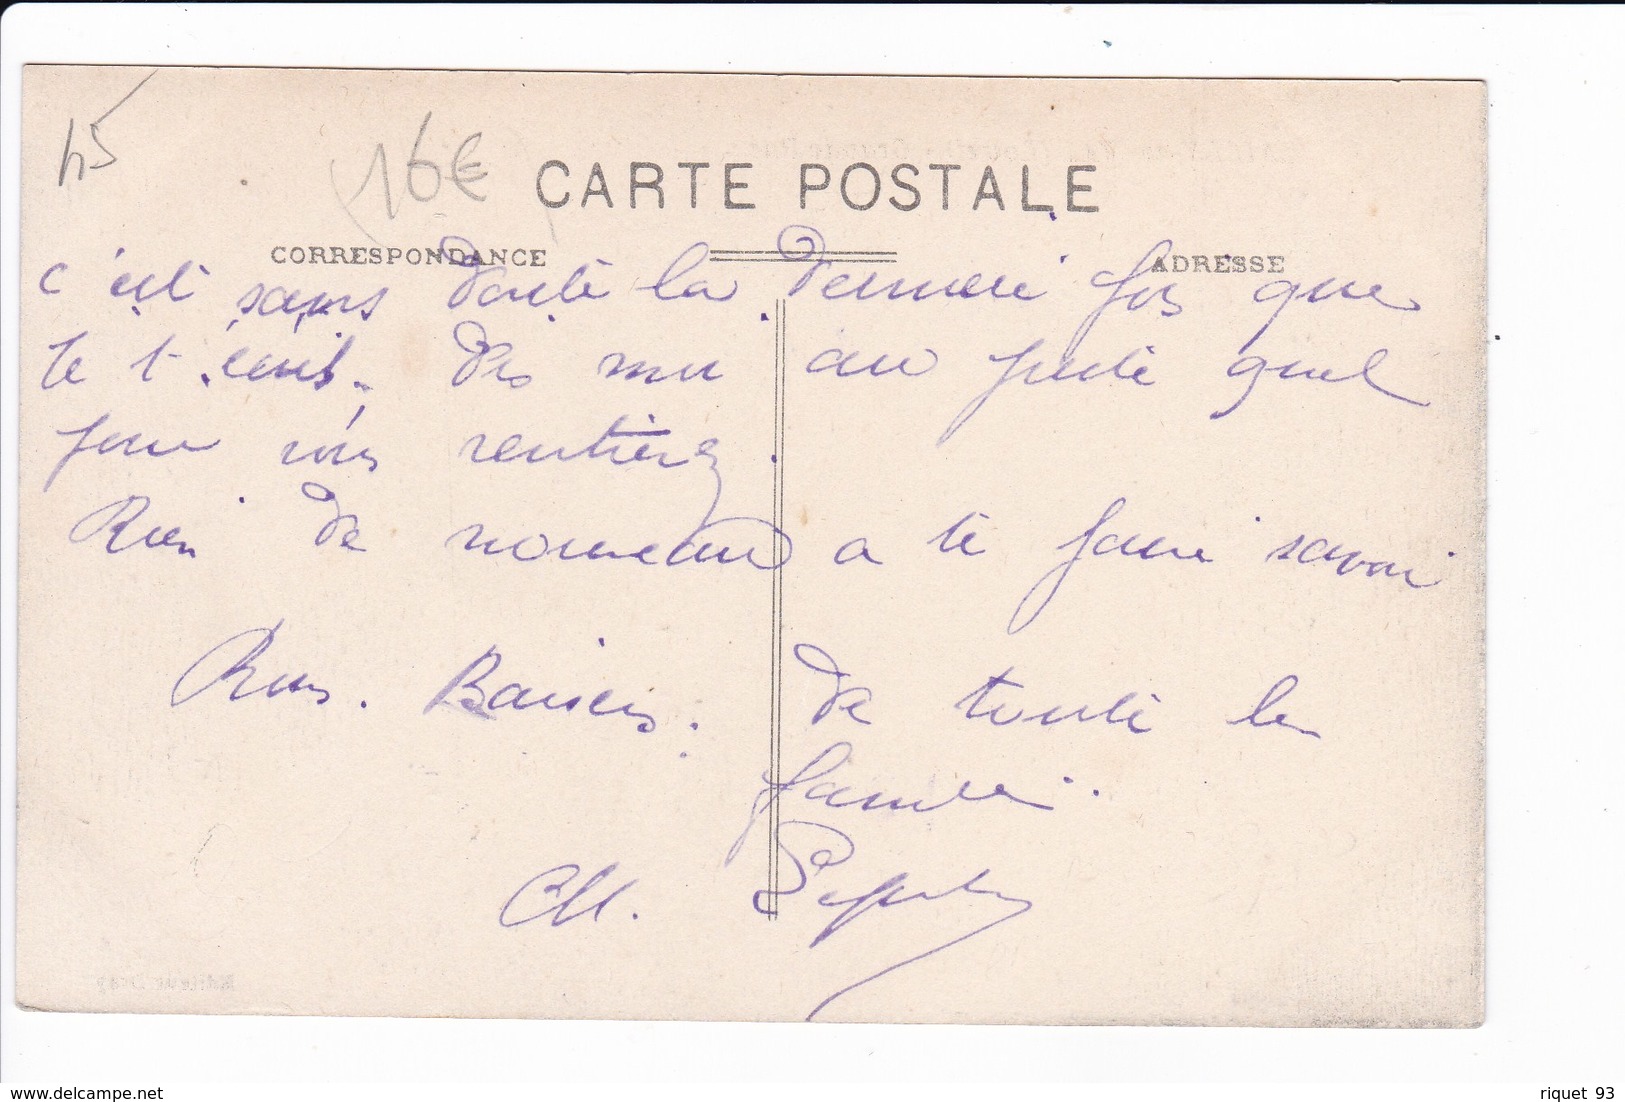 45
16€
CARTE POSTALE
CORRESPONDANCE
ADRESSE
c'est sans doute la derniere fois que
je t'ecris. dis moi au juste quel
jour vous rentrerez.
Rien de nouveau a te faire savoir
Bons. Baisers. de toute la
famille.
CH.
www.delcampe.net
riquet 93